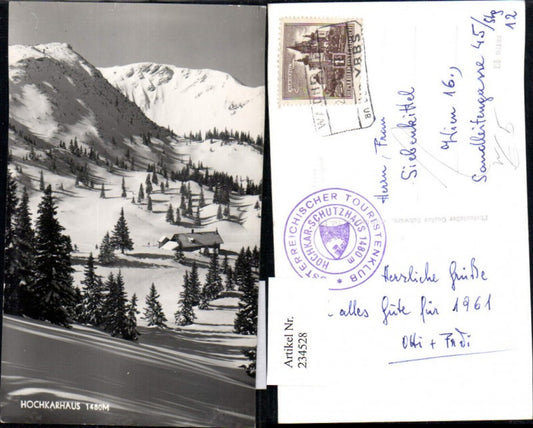 HOCKKARHAUS 1480M
Herrn, Frau
Siebenkittel
Wien 16.,
Sandleitengasse 45/Stg
12
ÖSTERREICHISCHER TOURISTENKLUB
HOCHKAR-SCHUTZHAUS 1480 m
Herzliche Grüße
alles Gute für 1961
Otti +
Artikel Nr.
234528